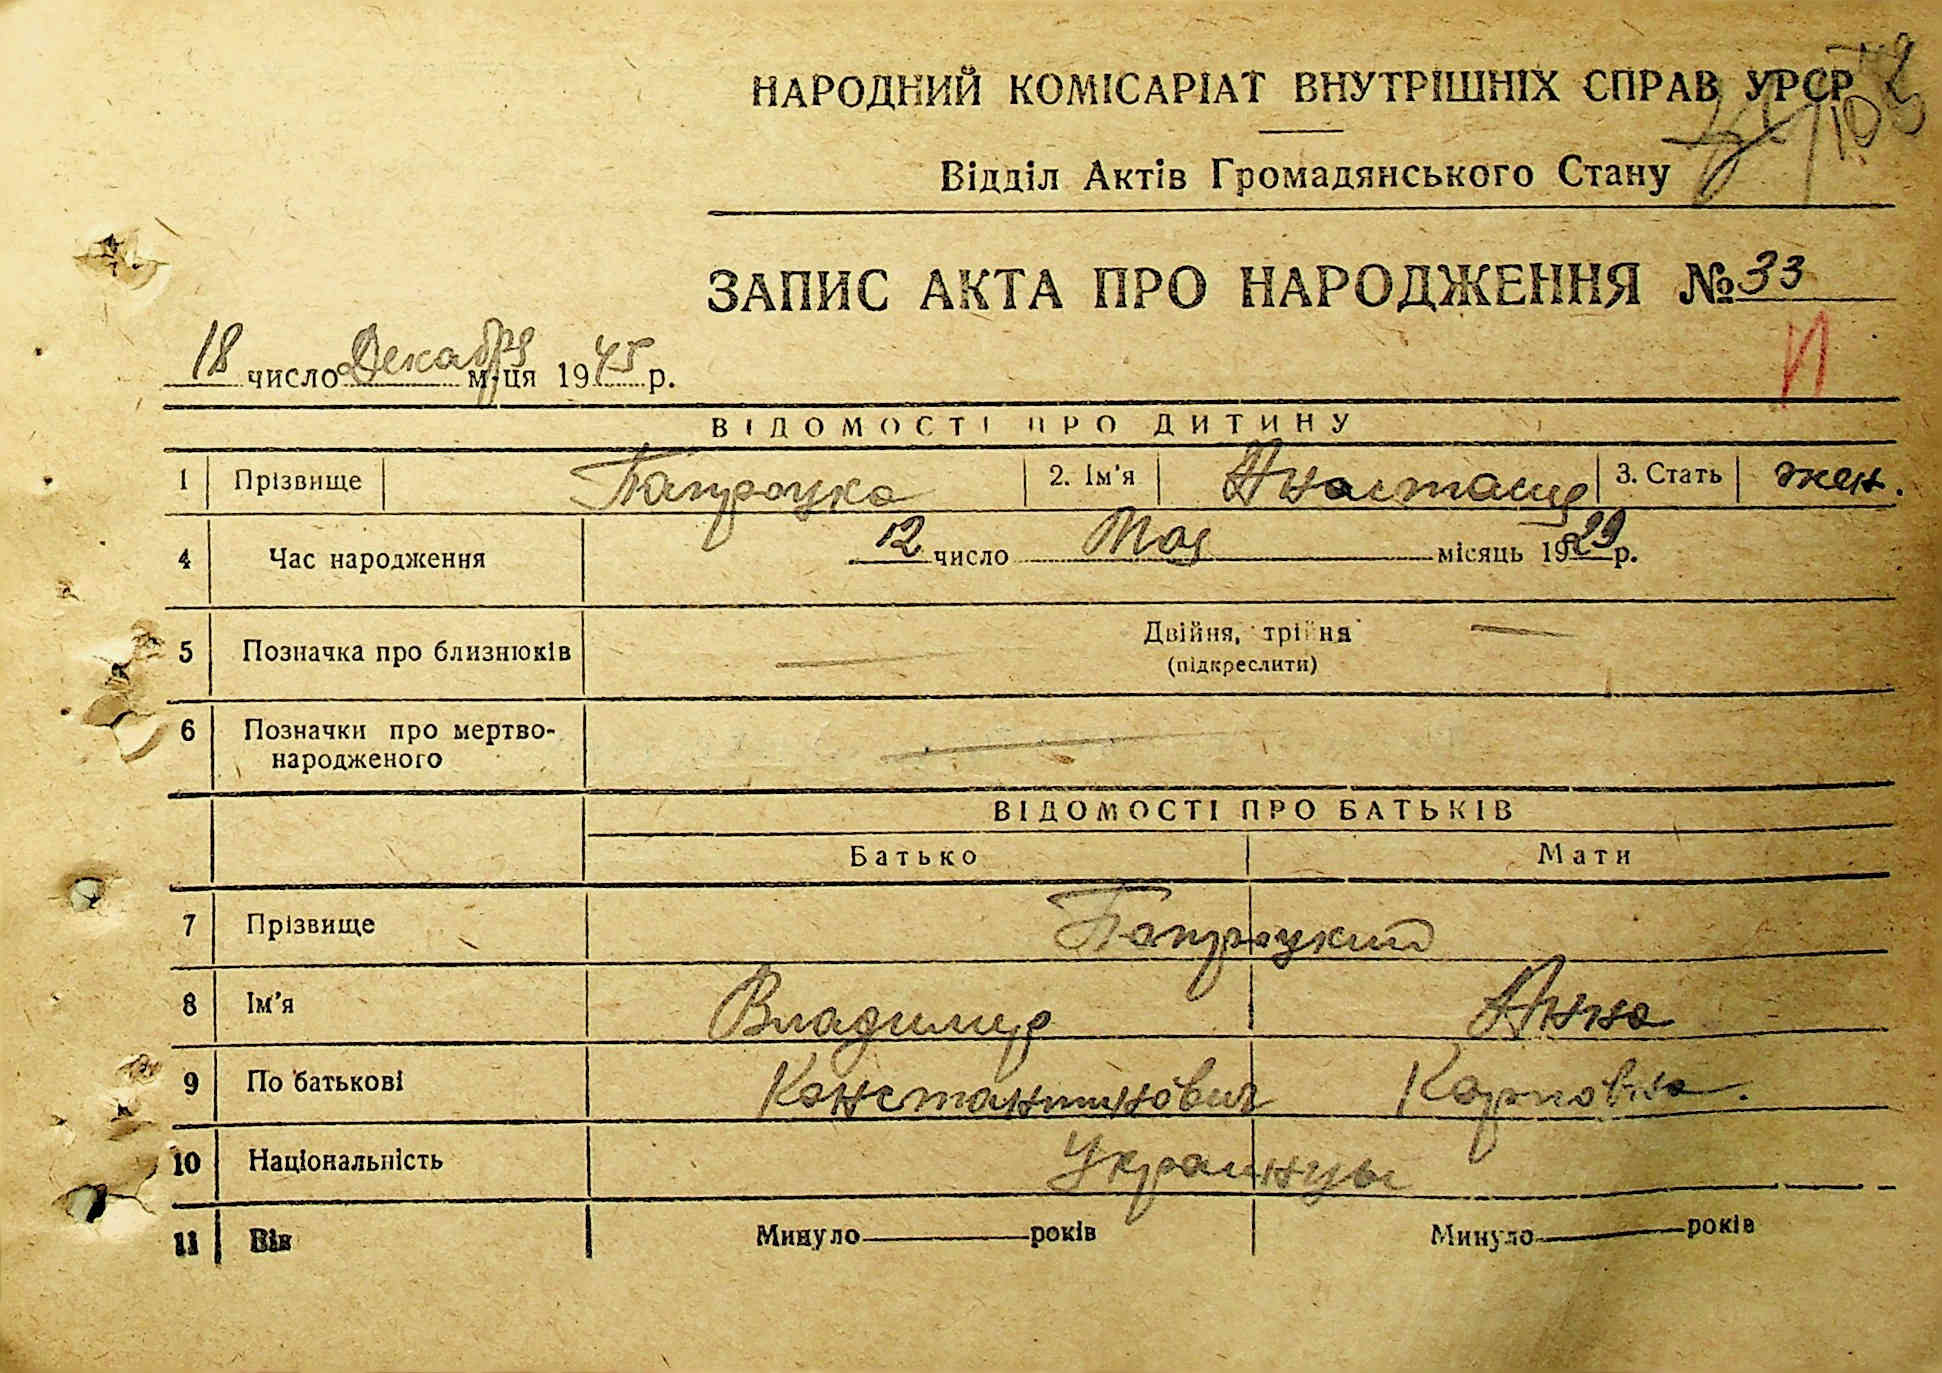 НАРОДНИЙ КОМІСАРІАТ ВНУТРІШНІХ СПРАВ УРСР
Відділ Актів Громадянського Стану
ЗАПИС АКТА ПРО НАРОДЖЕННЯ № 33
18 число Декабря м-ця 1945 р.
ВІДОМОСТІ ПРО ДИТИНУ
1 Прізвище Папроцка 2. Ім'я Анастасия 3. Стать жен.
4 Час народження 12 число Мая місяць 1929 р.
5 Позначка про близнюків Двійня, трійня —
(підкреслити)
6 Позначки про мертво-
народженого —
ВІДОМОСТІ ПРО БАТЬКІВ
Батько Мати
7 Прізвище Папроцкий
8 Ім'я Владимир Анна
9 По батькові Константинович Карповна.
10 Національність Украинцы
11 Вік Минуло — років Минуло — років